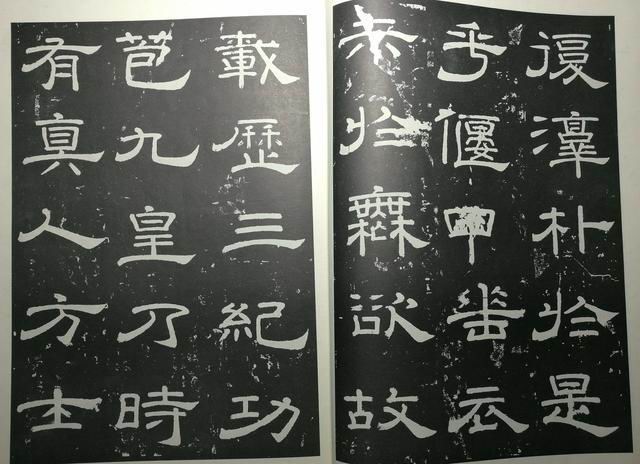 復淳朴於是
乎偃甲云
於無欲故
載歷三紀功
苞九皇乃時
有真人方士